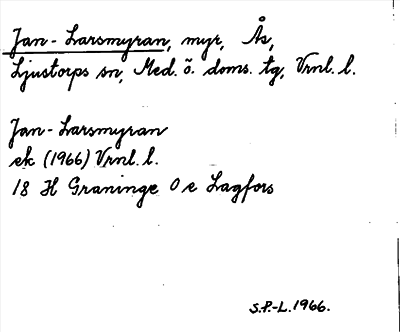 Jan-Larsmyran, myr, Ås,
Ljustorps sn, Med. ö. doms. tg, Vrnl. l.
Jan-Larsmyran
ek (1966) Vrnl. l.
18 H Graninge 0 e Lagfors
S.P.-L. 1966.